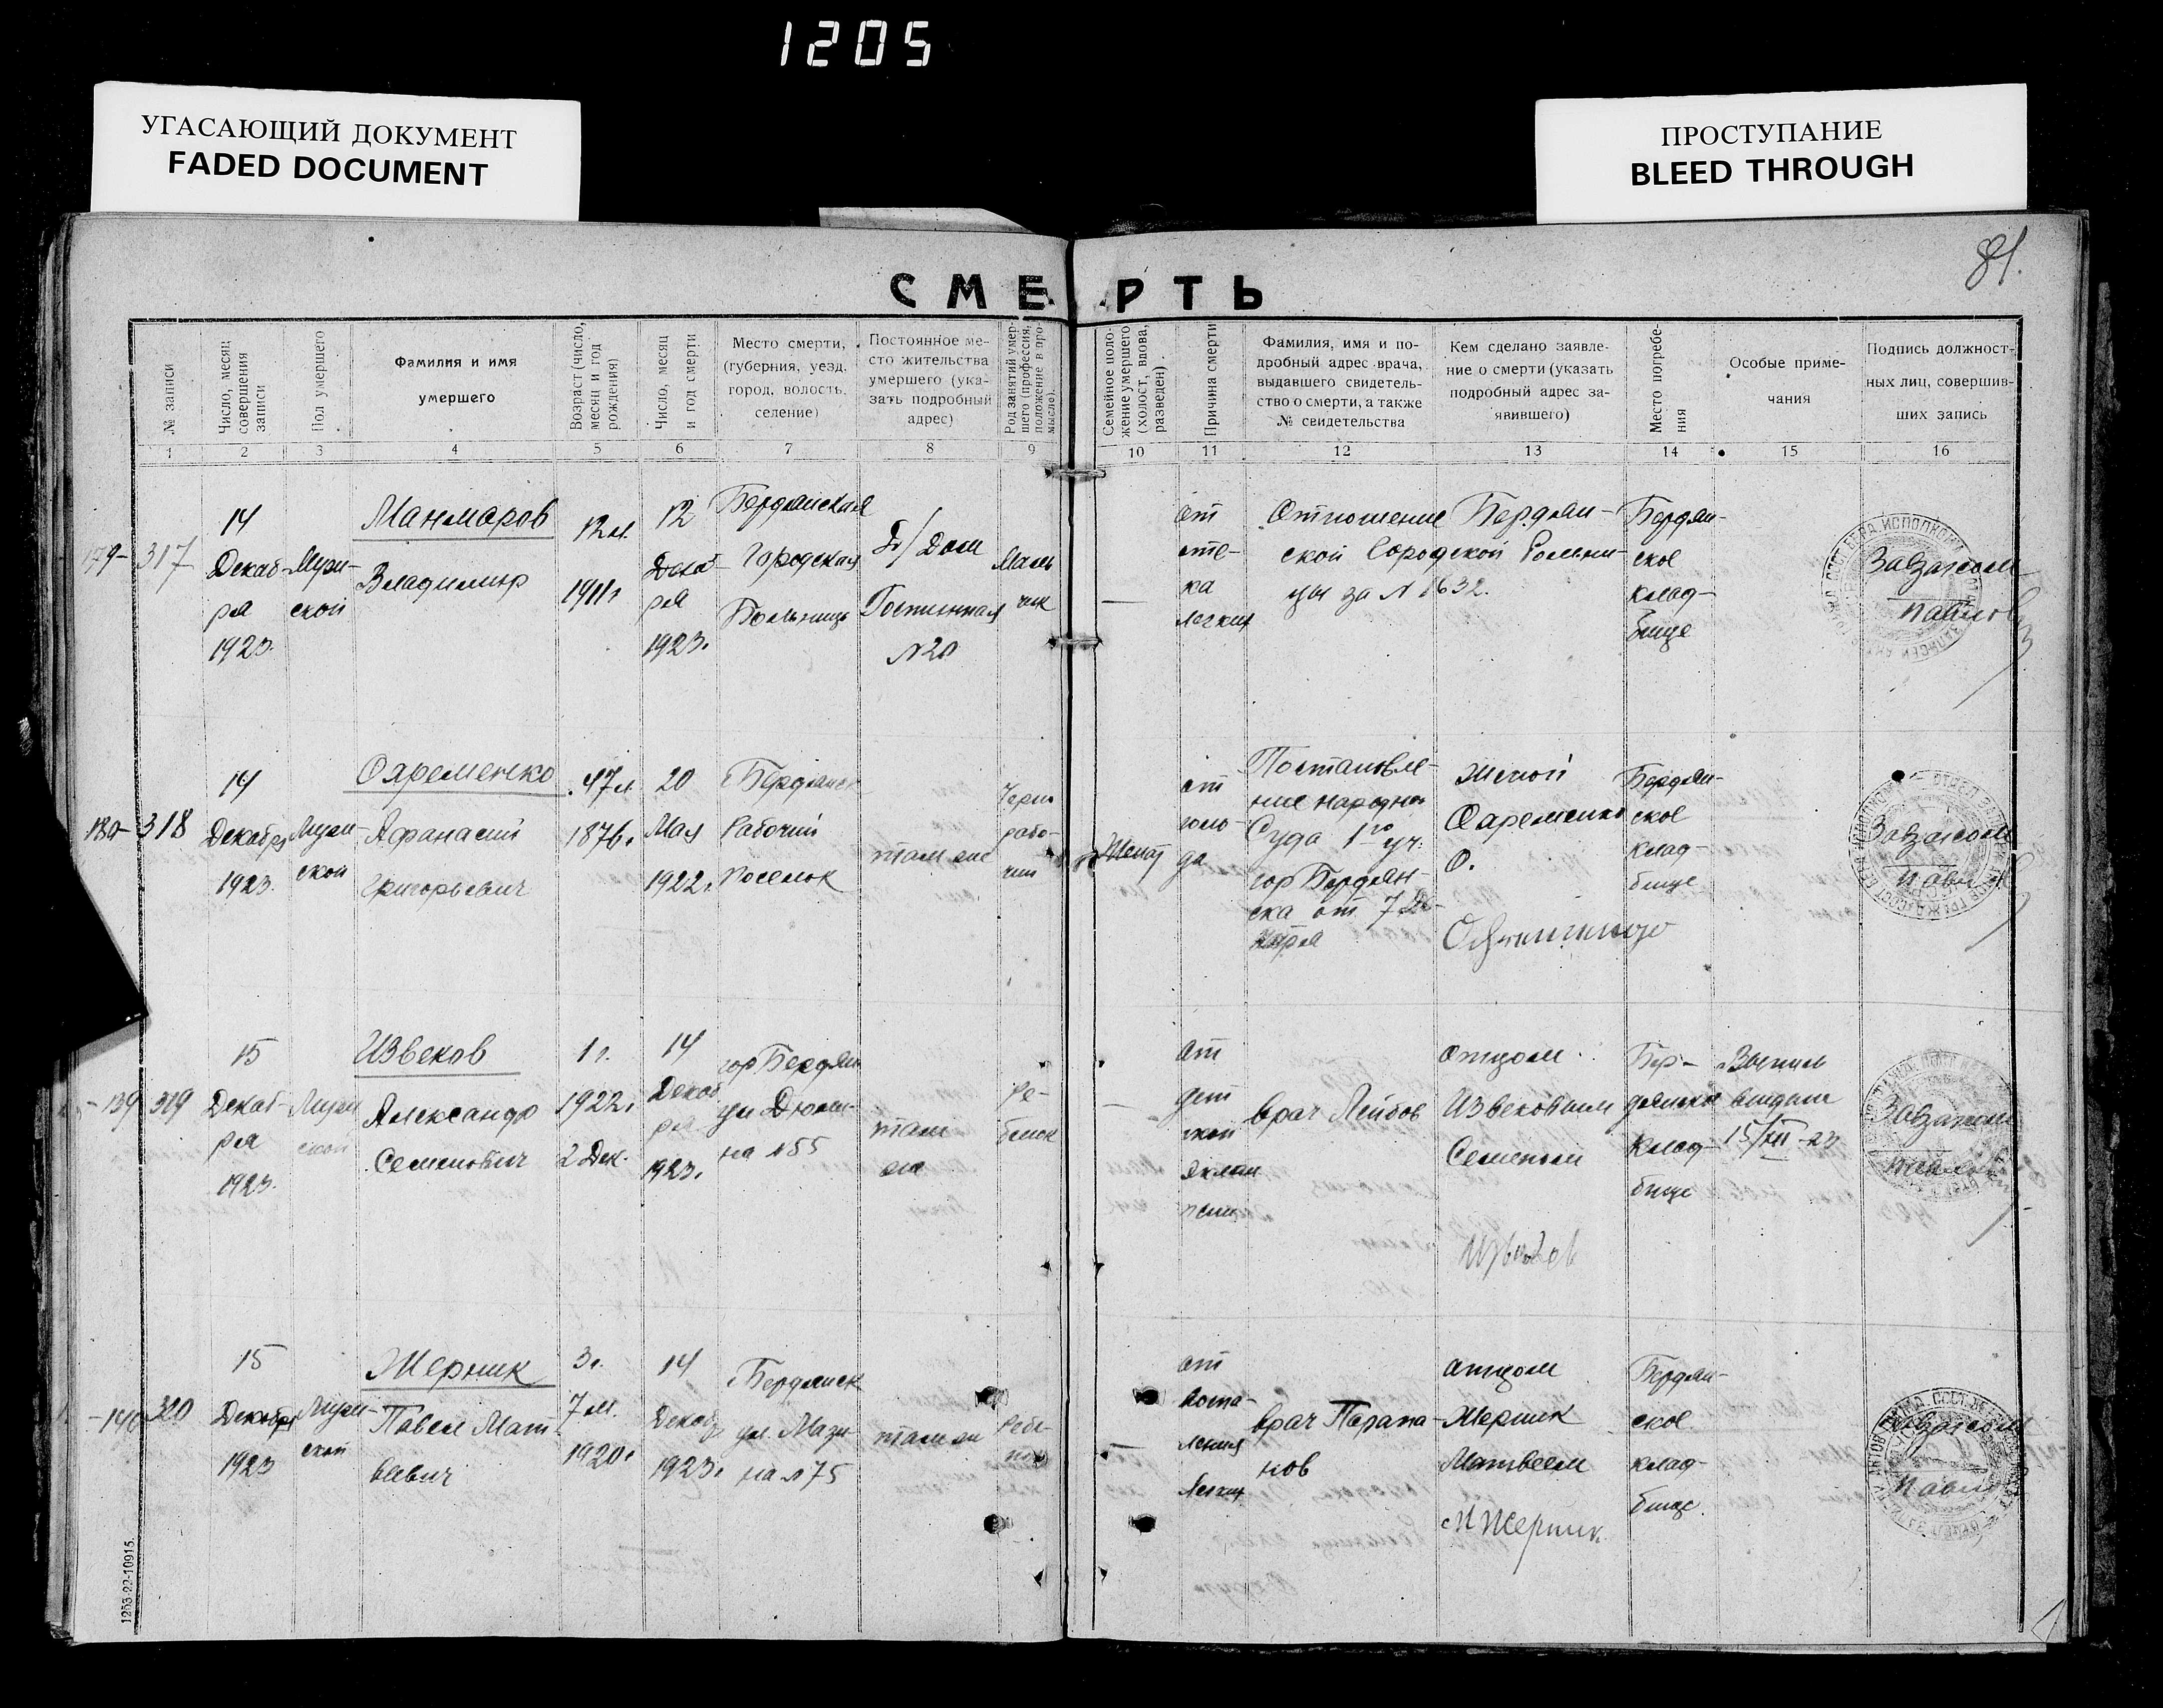 1205
УГАСАЮЩИЙ ДОКУМЕНТ
FADED DOCUMENT
ПРОСТУПАНИЕ
BLEED THROUGH
81.
СМЕРТЬ
№ записи
Число, месяц
совершения
записи
Пол умершего
Фамилия и имя
умершего
Возраст (число,
месяц и год
рождения)
Число, месяц
и год смерти
Место смерти,
(губерния, уезд,
город, волость,
селение)
Постоянное ме-
сто жительства
умершего (ука-
зать подробный
адрес)
Род занятий умер-
шего (профессия,
положение в про-
мысле).
Семейное поло-
жение умершего
(холост, вдова,
разведен)
Причина смерти
Фамилия, имя и по-
дробный адрес врача,
выдавшего свидетель-
ство о смерти, а также
№ свидетельства
Кем сделано заявле-
ние о смерти (указать
подробный адрес за-
явившего)
Место погребе-
ния
Особые приме-
чания
Подпись должност-
ных лиц, совершив-
ших запись
1 2 3 4 5 6 7 8 9 10 11 12 13 14 15 16
179-
317
14
Декаб-
ря
1923.
Муж-
ской
Манмаров
Владимир
12 л.
1911 г
12
Декаб
ря
1923.
Бердянская
Городская
Больница
Д/Дом
Гостинная
№ 20
Маль
чик
—
от
оте-
ка
легких
Отношение Бердян-
ской Городской Больни-
цы за № 1632.
Бердян-
ское
клад-
бище
Завзагсом
Павлов
180-
318
14
Декабря
1923.
Мужс-
ской
Охременко
Афанасий
Григорьевич
47 л.
1876 г
20
Мая
1922 г
Бердянск
Рабочий
Поселок
там же
Черно
рабо-
чий
Женат
от
голо-
да
Постановле-
ние народн
Суда 1го уч.
гор Бердян-
ска от 7 Де-
кабря
Женой
Охременко
О.
Бердян-
ское
клад-
бище
Завзагсом
Павлов
139
319
15
Декаб-
ря
1923.
Муж
ской
Извеков
Александр
Семенович
1 г.
1922 г
2 Дек.
14
Декаб
ря
1923 г
гор Бердян
ул Дюми-
на № 55
там
же
Ре-
бенок
—
от
дет
ской
эклам
псии
врач Лейбов
отцом
Извековым
Семеном
Извеков
Бер-
дянское
клад-
бище
Выпись
выдана
15/XII-23
Завзагсом
Павлов
-140
320
15
Декабря
1923
Муж-
ской
Жерник
Павел Мат-
веевич
3 г.
7 м.
1920 г
14
Декаб
1923 г
Бердянск
ул. Мази-
на № 75
там же
Ребе-
нок
—
от
воспа-
ления
легких
врач Парапа-
нов
отцом
Жерник
Матвеем
М Жерник.
Бердян-
ское
клад-
бище
Завзагсом
Павлов
1263-22-10915.